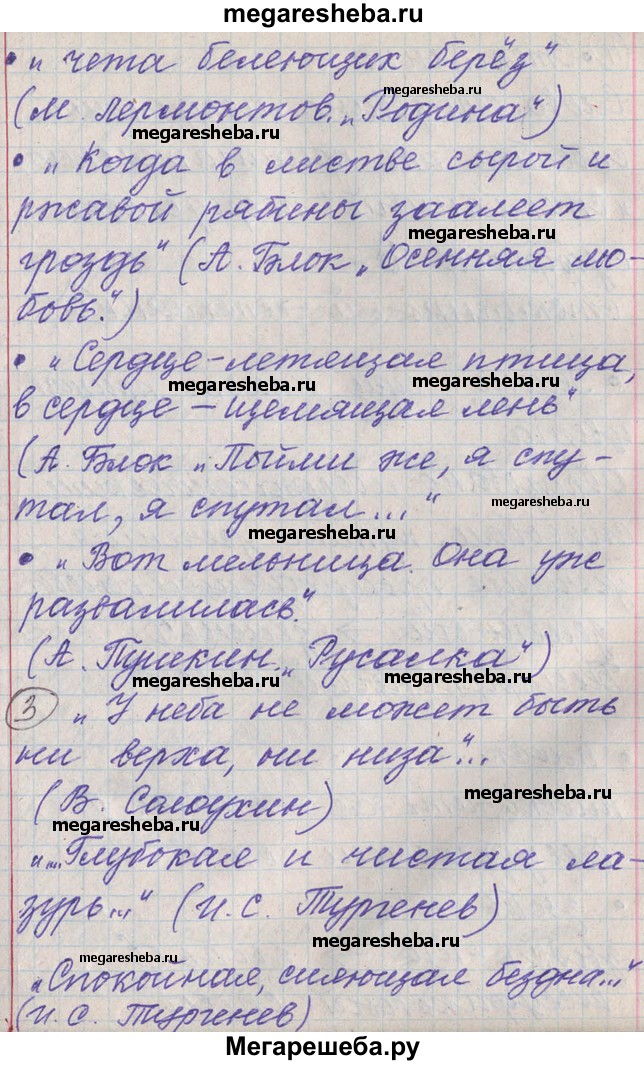 megaresheba.ru
• „ чета белеющих берёз“
megaresheba.ru
(М. Лермонтов. „Родина“)
megaresheba.ru
• „Когда в листве сырой и
ржавой рябины заалеет
megaresheba.ru
гроздь“ (А. Блок „Осенняя лю-
бовь.“)
• „Сердце – летящая птица,
megaresheba.ru megaresheba.ru
в сердце – щемящая лень“
(А. Блок „Пойми же, я спу-
тал, я спутал...“
megaresheba.ru
megaresheba.ru
• „Вот мельница. Она уж
развалилась.“
(А. Пушкин „Русалка“)
megaresheba.ru megaresheba.ru
3 „У неба не может быть
ни верха, ни низа“...
(В. Солоухин)
megaresheba.ru
„...Глубокая и чистая ла-
зурь...“ (И.С. Тургенев)
megaresheba.ru
megaresheba.ru
„Спокойная, сияющая бездна...“
(И.С. Тургенев)
Мегарешеба.ру